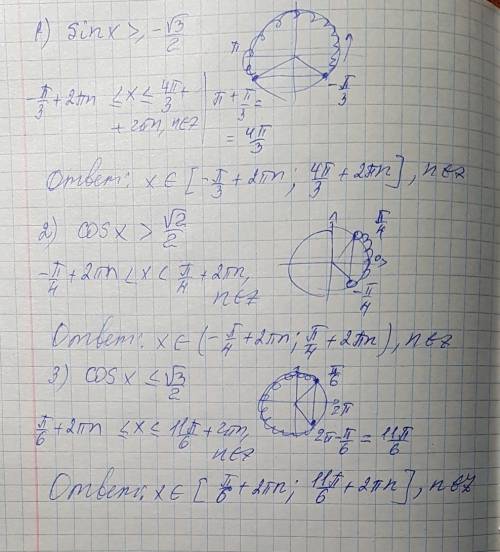 1) sinx ≥ -√3/2
π
-π/3
-π/3 + 2πn ≤ x ≤ 4π/3 +
+ 2πn, n∈z
π + π/3 =
= 4π/3
Ответ: x ∈ [-π/3 + 2πn; 4π/3 + 2πn], n∈z
2) cosx > √2/2
π/4
0
-π/4
-π/4 + 2πn < x < π/4 + 2πn,
n∈z
Ответ: x ∈ (-π/4 + 2πn; π/4 + 2πn), n∈z
3) cosx ≤ √3/2
π/6
2π
2π - π/6 = 11π/6
π/6 + 2πn ≤ x ≤ 11π/6 + 2πn,
n∈z
Ответ: x ∈ [π/6 + 2πn; 11π/6 + 2πn], n∈z